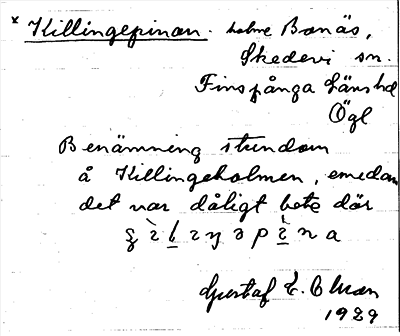 x Killingepinan. holme Bonäs,
Skedevi sn.
Finspånga länshd
Ögl
Benämning stundom
å Killingeholmen, emedan
det var dåligt bete där
Gustaf E.
1929